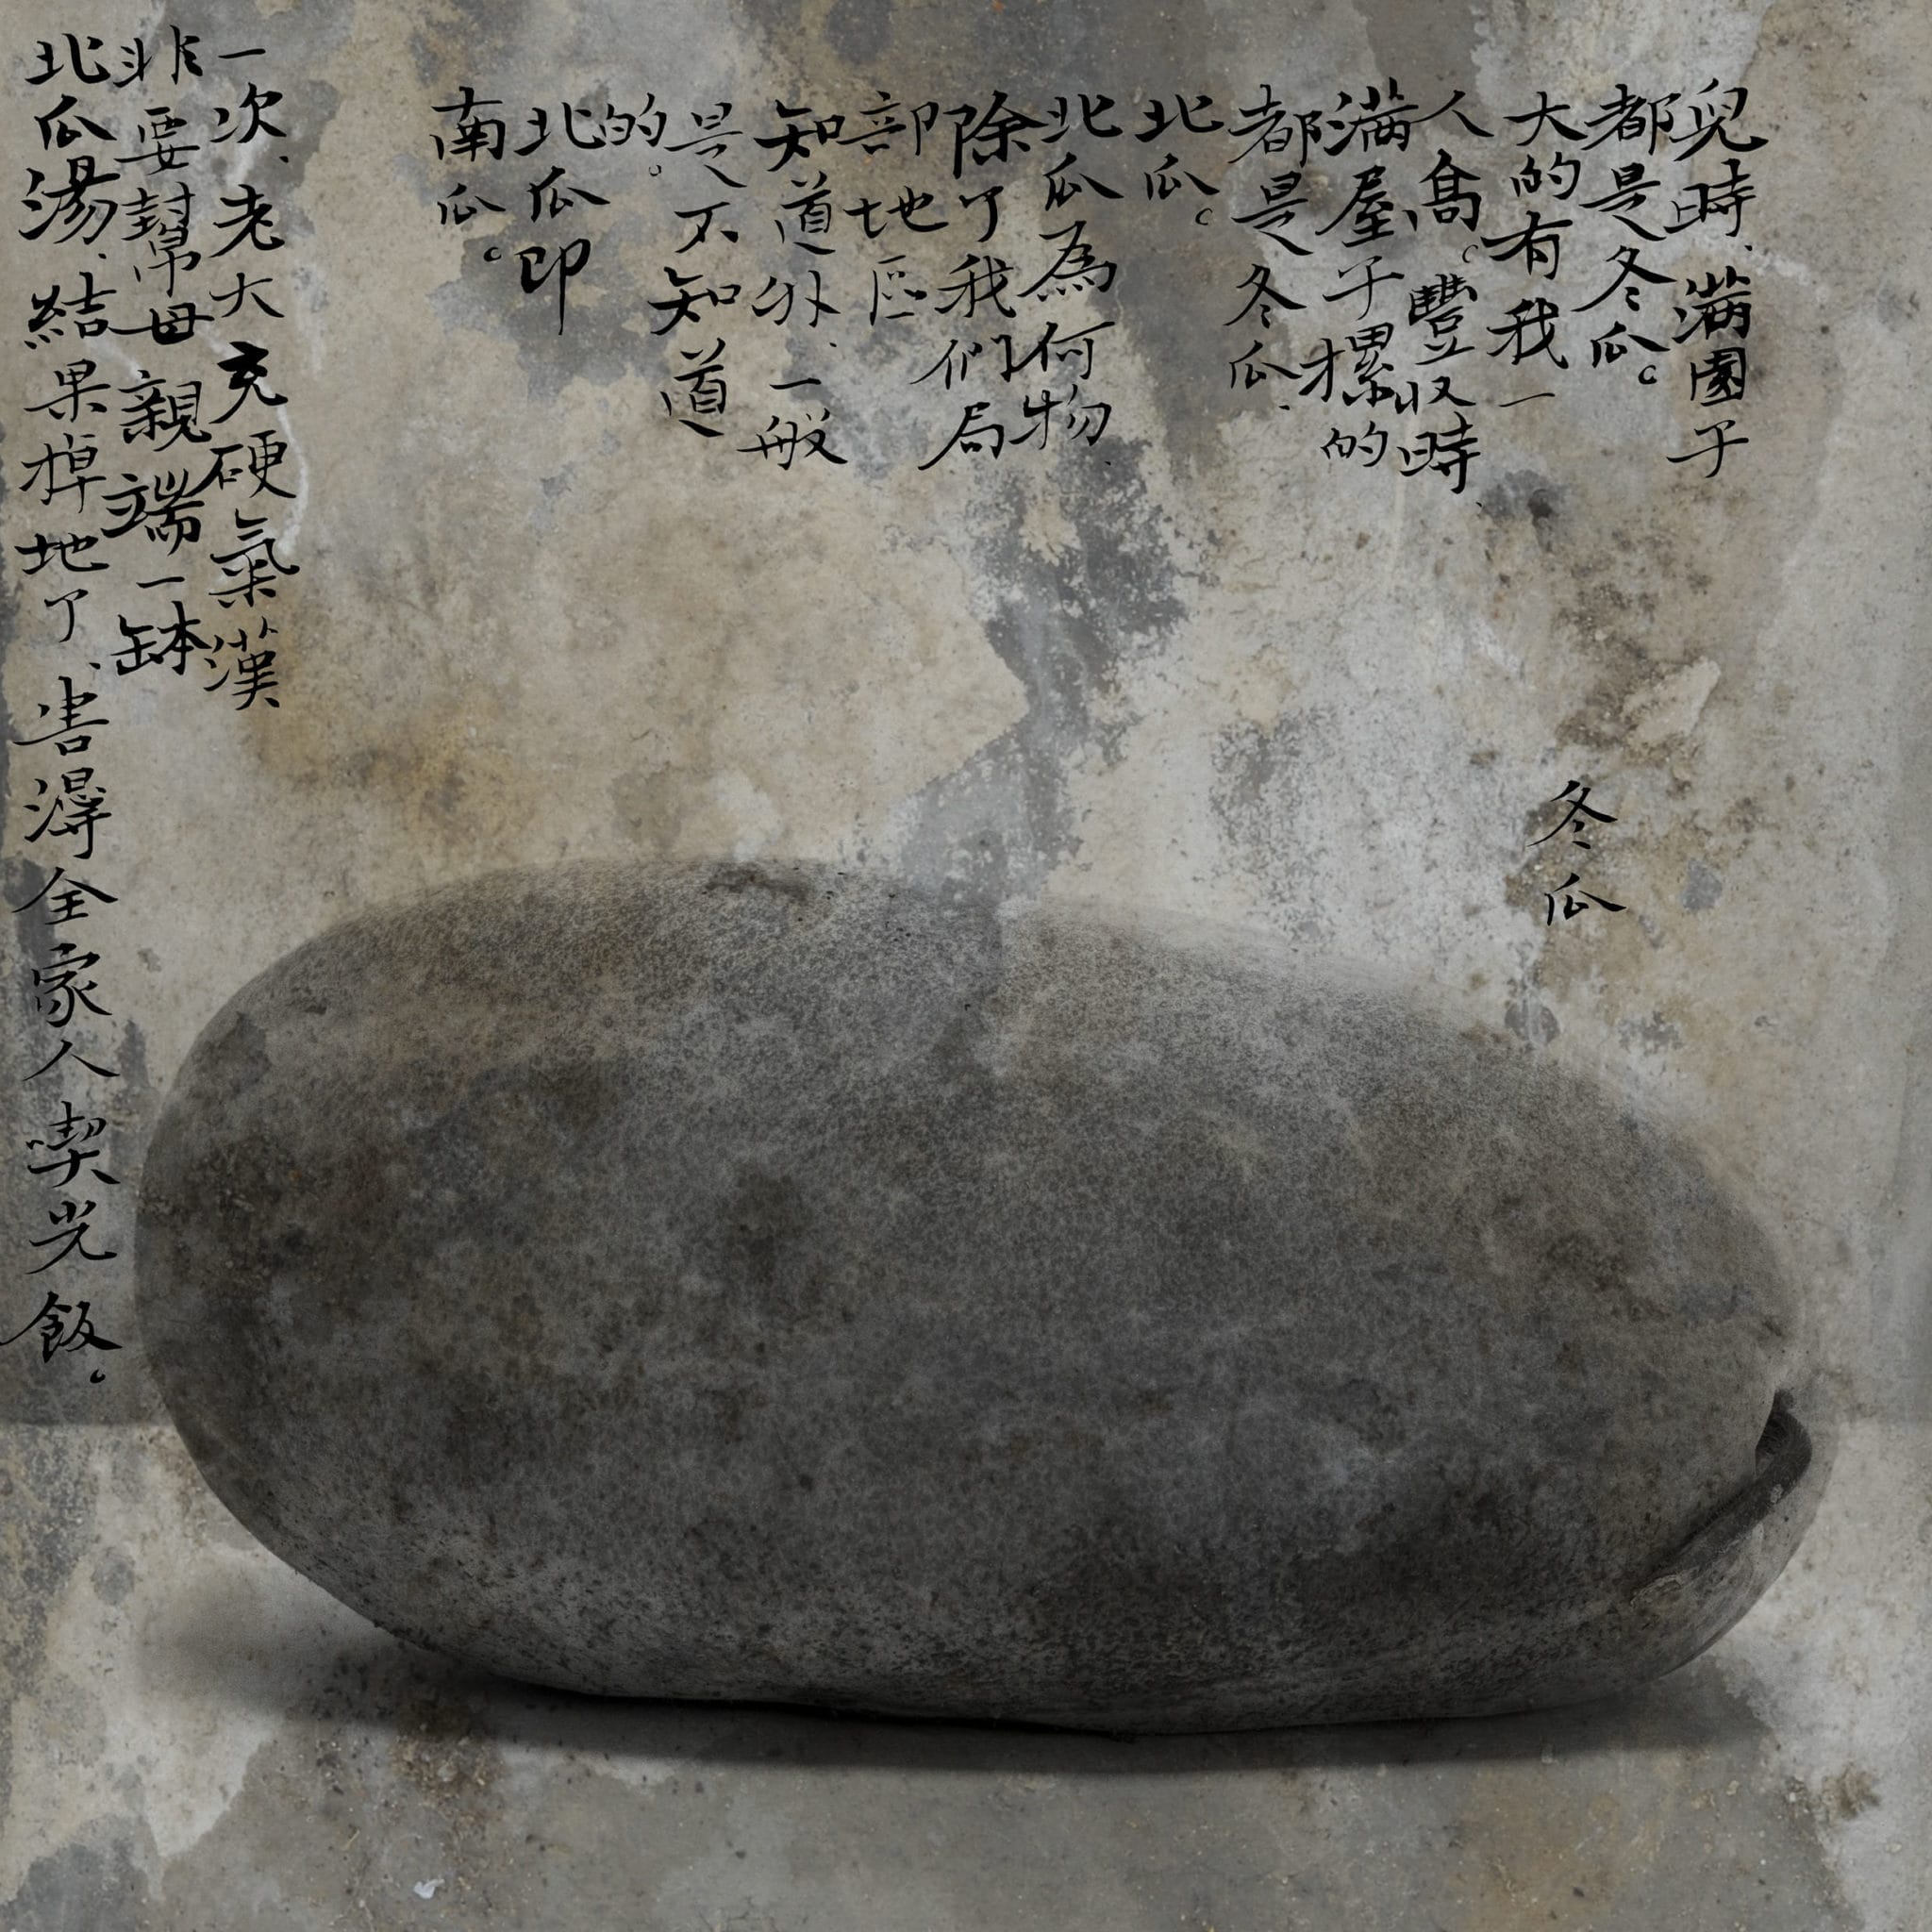 兒時、滿園子
都是冬瓜。
大的有我一
人高。豐收時、
滿屋子摞的
都是冬瓜、
北瓜。
北瓜為何物、
除了我們局
部地區
知道外、一般
是不知道
的。
北瓜即
南瓜。
冬瓜
一次、老大充硬氣漢
非要幫母親端一缽
北瓜湯、結果掉地了、害得全家人喫光飯。